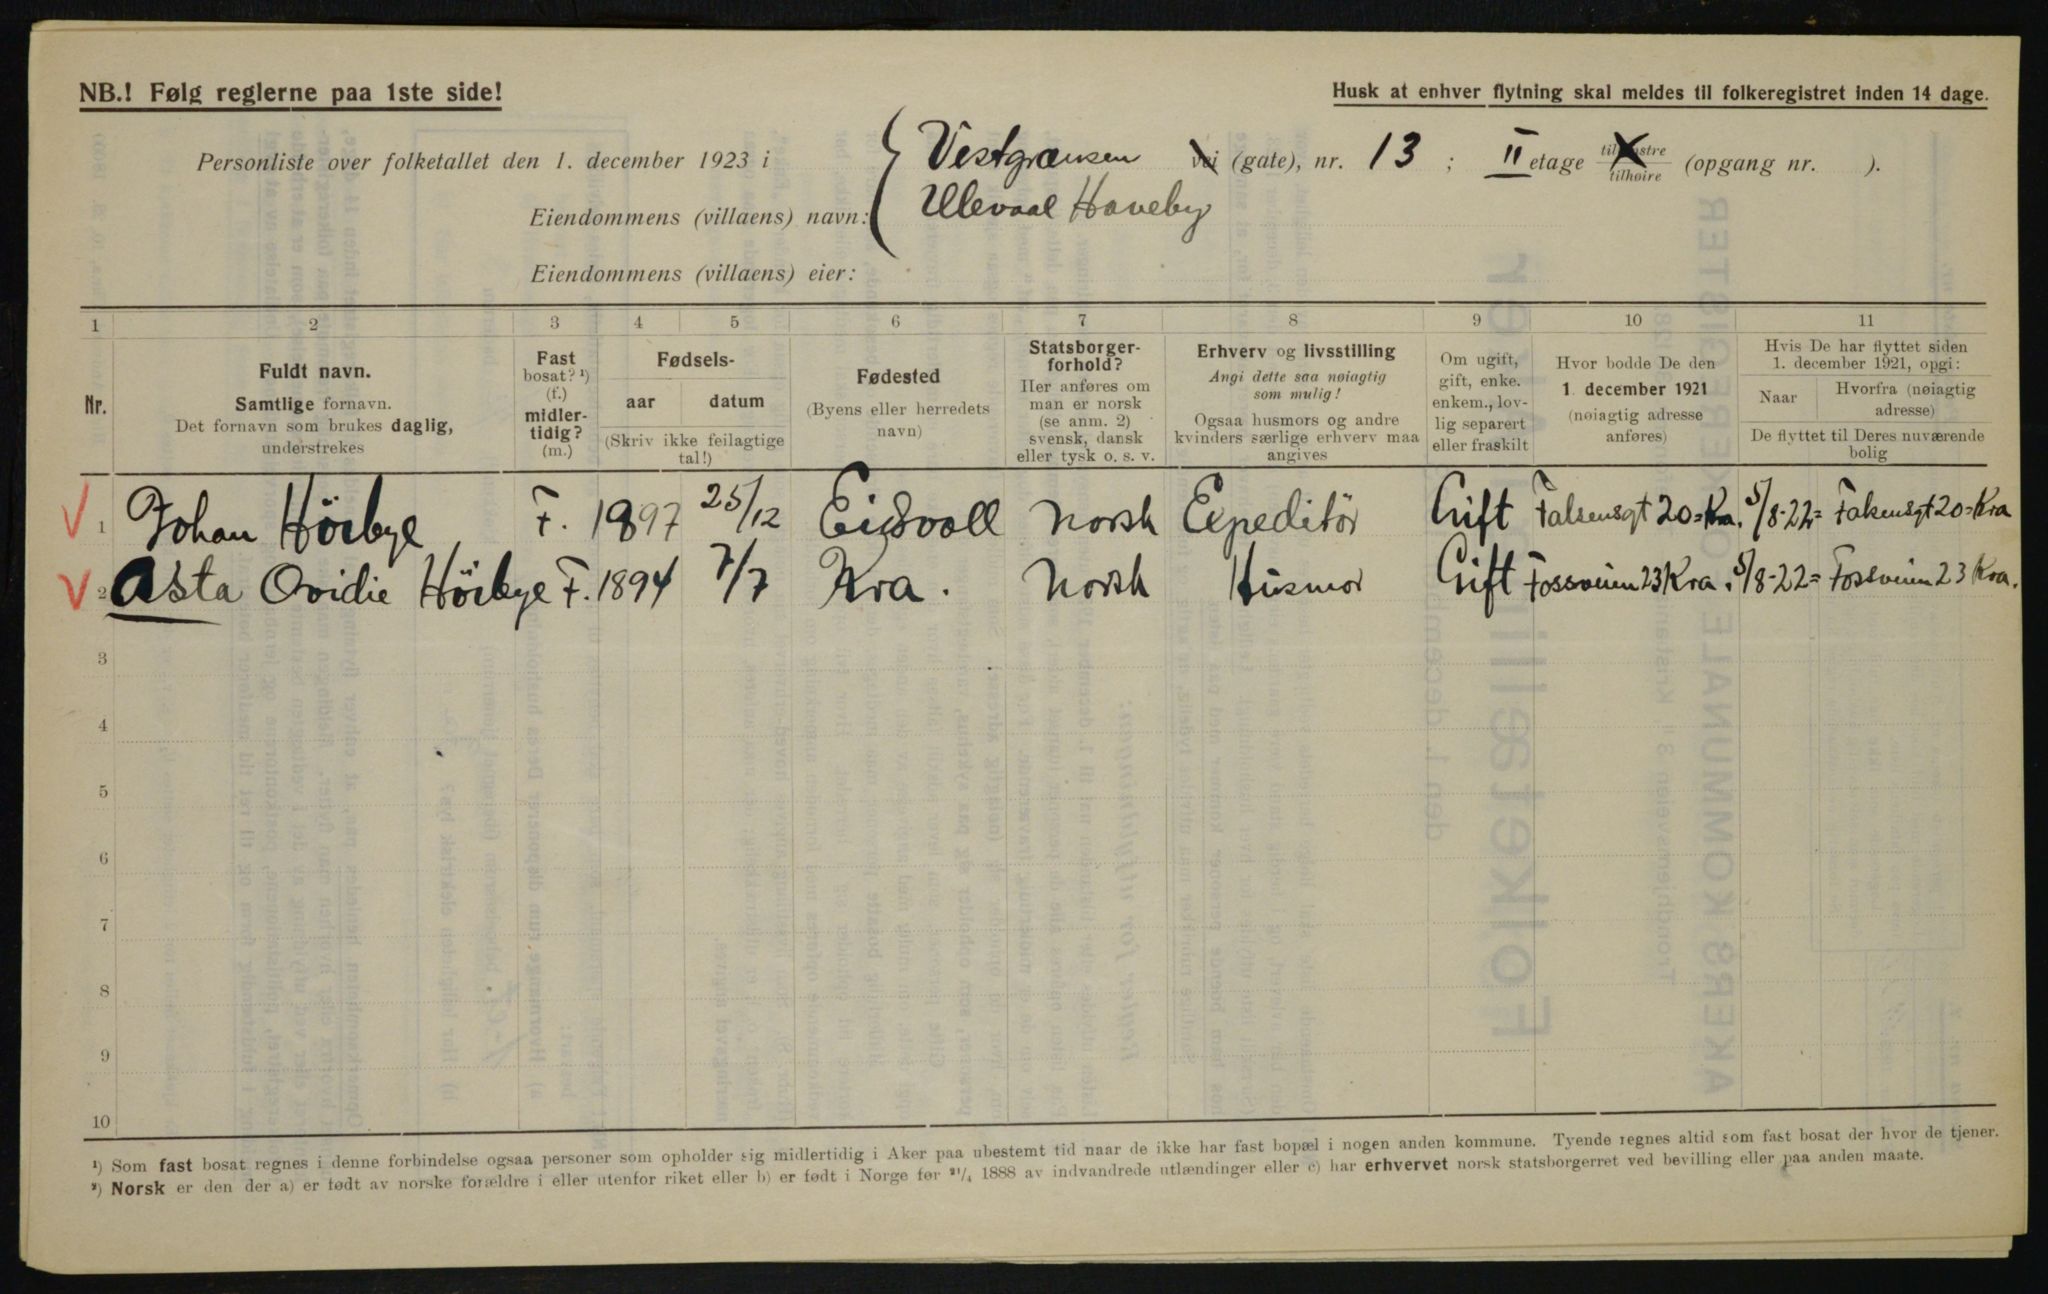 NB.! Følg reglerne paa 1ste side!
Husk at enhver flytning skal meldes til folkeregistret inden 14 dage.
Personliste over folketallet den 1. december 1923 i Vestgrænsen vei (gate), nr. 13 ; II etage tilvenstre tilhøire (opgang nr. ).
Eiendommens (villaens) navn: Ullevaal Haveby
Eiendommens (villaens) eier:
1 2 3 4 5 6 7 8 9 10 11
Nr.
Fuldt navn.
Samtlige fornavn.
Det fornavn som brukes daglig,
understrekes
Fast
bosat? ¹)
(f.)
midler-
tidig?
(m.)
Fødsels-
aar datum
(Skriv ikke feilagtige
tal!)
Fødested
(Byens eller herredets
navn)
Statsborger-
forhold?
Her anføres om
man er norsk
(se anm. 2)
svensk, dansk
eller tysk o. s. v.
Erhverv og livsstilling
Angi dette saa nøiagtig
som mulig!
Ogsaa husmors og andre
kvinders særlige erhverv maa
angives
Om ugift,
gift, enke.
enkem., lov-
lig separert
eller fraskilt
Hvor bodde De den
1. december 1921
(nøiagtig adresse
anføres)
Hvis De har flyttet siden
1. december 1921, opgi:
Naar
Hvorfra (nøiagtig
adresse)
De flyttet til Deres nuværende
bolig
1 Johan Hörbye F. 1897 25/12 Eidsvoll Norsk Expeditör Gift Falsensgt 20=Kra. 5/8-22= Falsensgt 20=Kra
2 Asta Ovidie Hörbye F. 1894 7/7 Kra. Norsk Husmor Gift Fossveien 23 Kra. 5/8-22= Fossveien 23 Kra.
3
4
5
6
7
8
9
10
¹) Som fast bosat regnes i denne forbindelse ogsaa personer som opholder sig midlertidig i Aker paa ubestemt tid naar de ikke har fast bopæl i nogen anden kommune. Tyende regnes altid som fast bosat der hvor de tjener.
²) Norsk er den der a) er født av norske forældre i eller utenfor riket eller b) er født i Norge før ²¹/₄ 1888 av indvandrede utlændinger eller c) har erhvervet norsk statsborgerret ved bevilling eller paa anden maate.